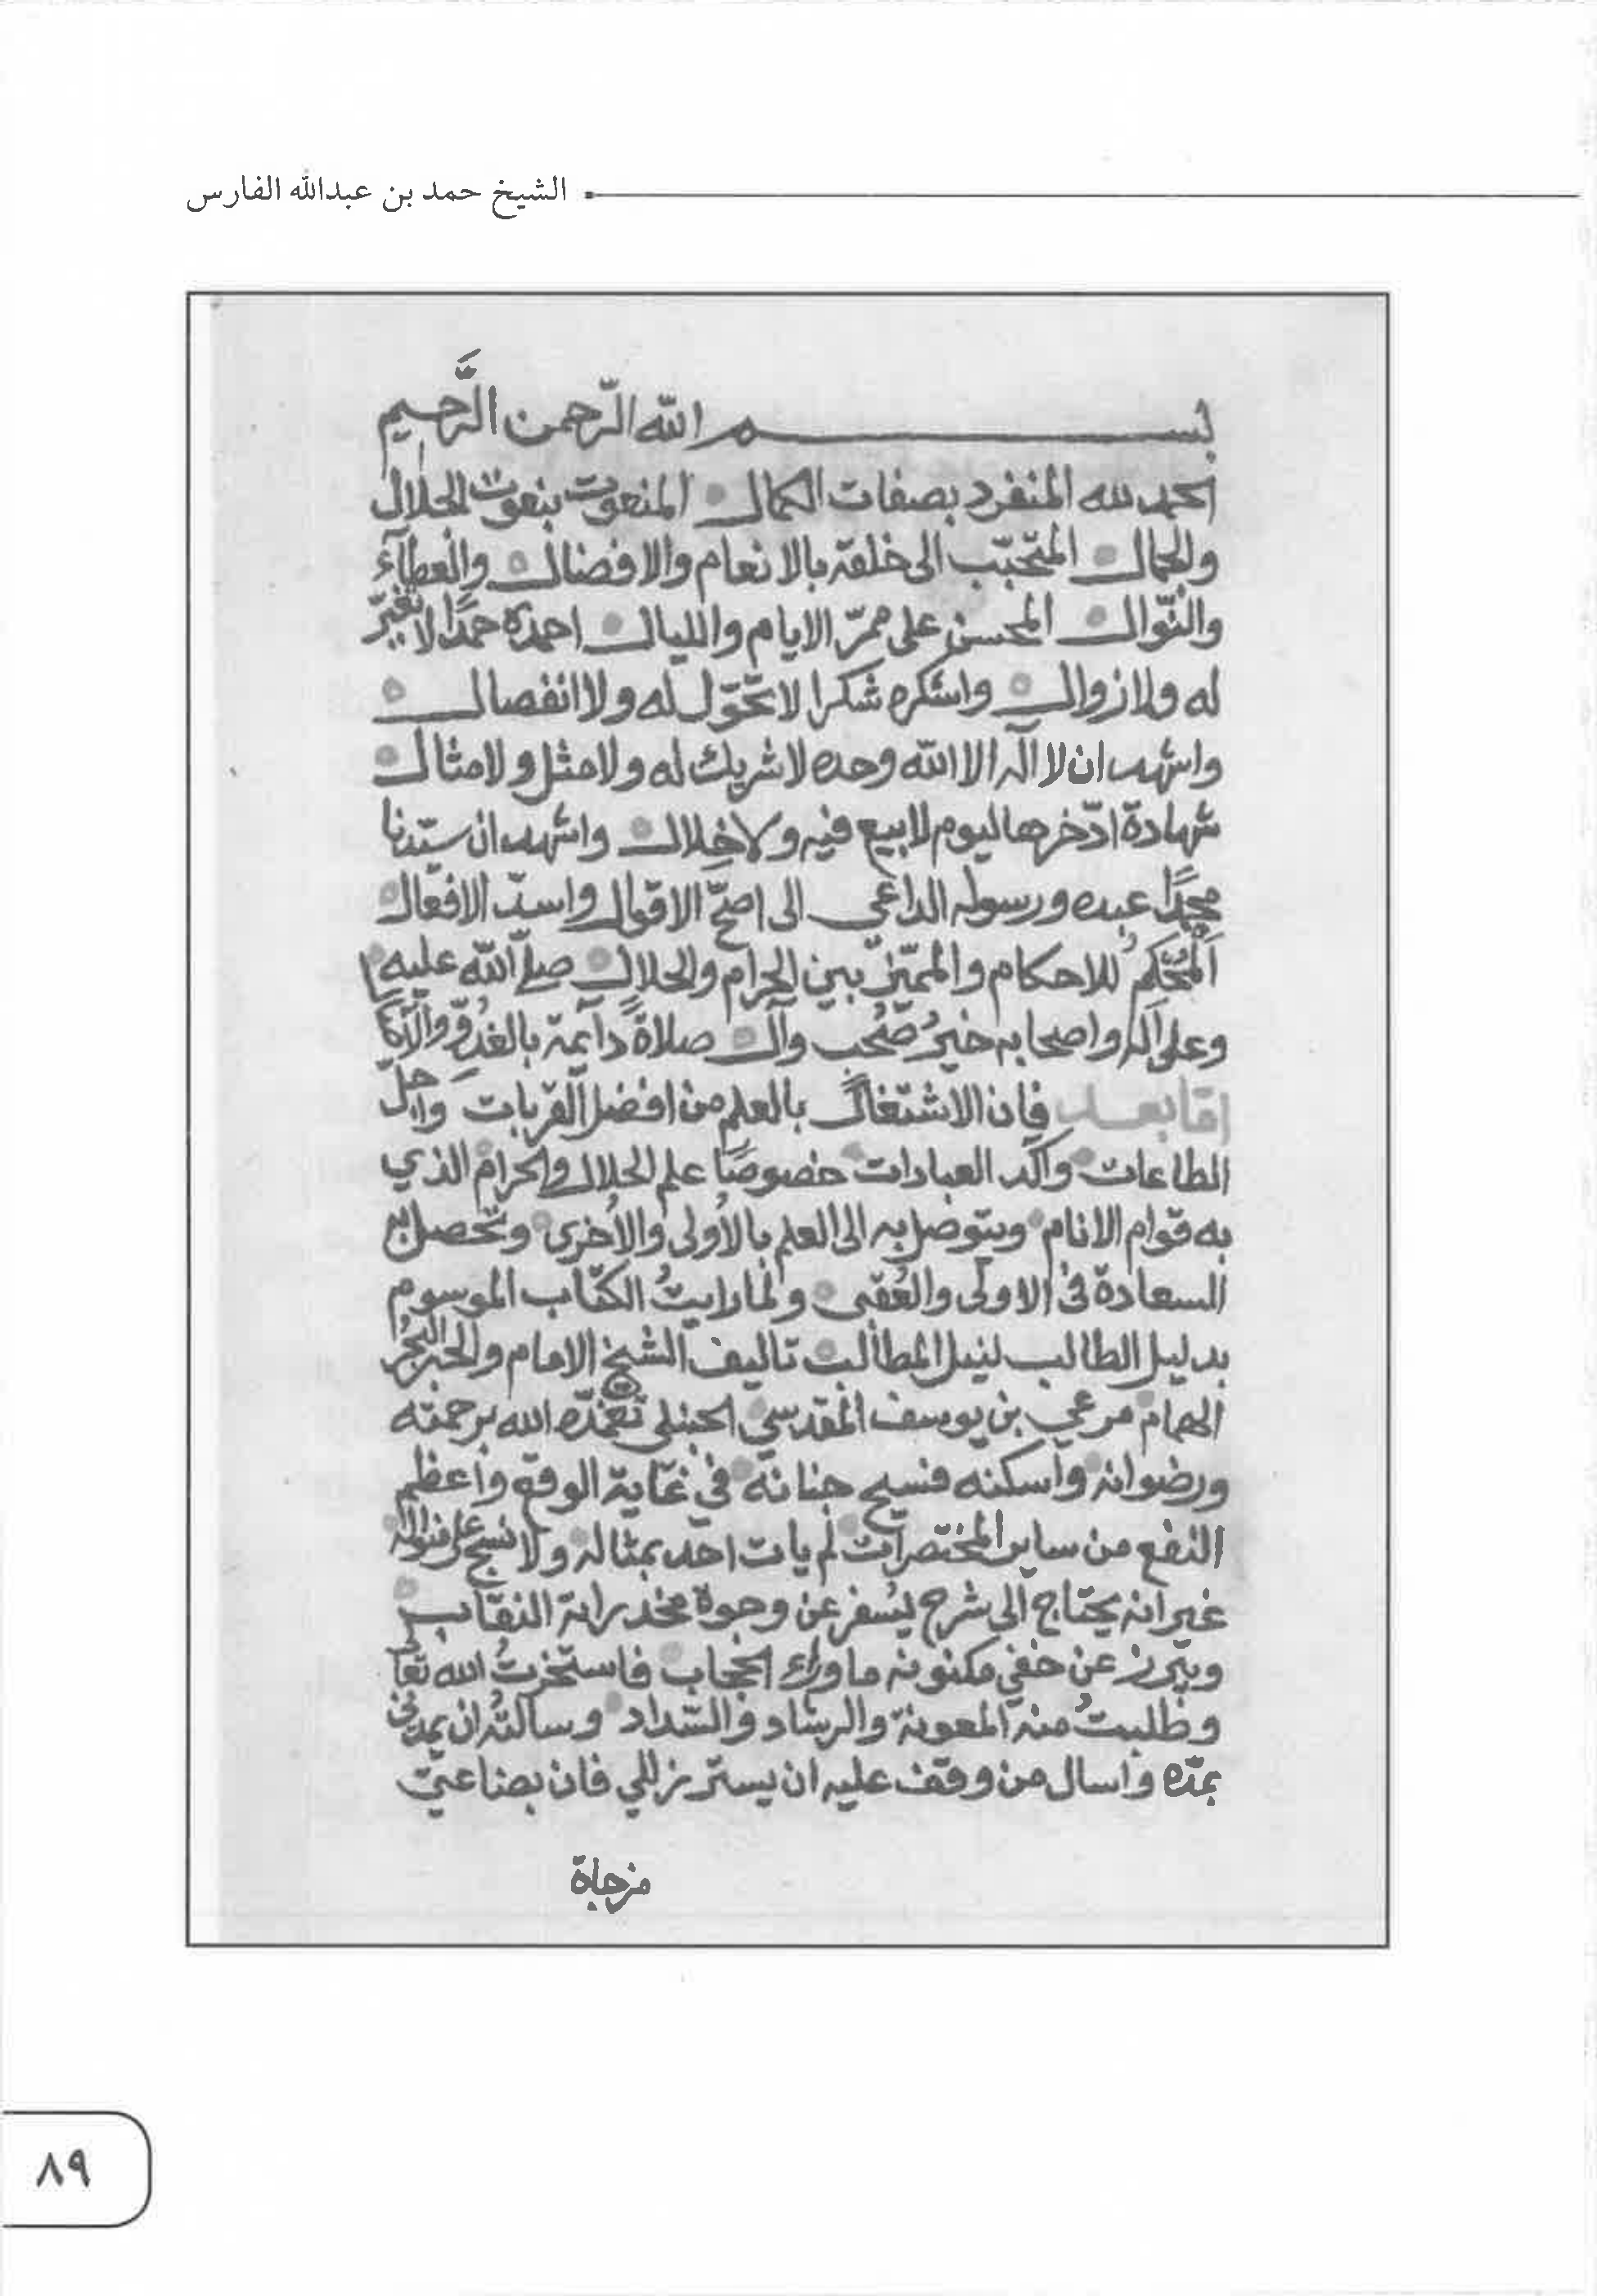 الشيخ حمد بن عبدالله الفارس
بسم الله الرّحمن الرَّحيم
الحمد لله المنفرد بصفات الكمال المنعوت بنعوت الجلال
والجمال المتحبّب الى خلقه بالانعام والافضال والعطآء
والنّوال المحسن على ممرّ الايام والليال احمده حمدًا لا تغيّر
له ولا زوال واشكره شكرا لا تحّوّل له ولا انفصال
واشهد ان لا اله الا الله وحده لا شريك له ولا مثل ولا مثال
شهادة ادّخرها ليوم لا بيع فيه ولا خلال واشهد ان سيّدنا
محمدًا عبده ورسوله الداعي الى اصحّ الاقوال واسدّ الافعال
المُحكم للاحكام والمميّز بين الحرام والحلال صلى الله عليه
وعلى آله واصحابه خيرُ صَحْب وآل صلاةً دآئمة بالغُدوّ والآصال
امّا بعد فان الاشتغال بالعلم من افضل القربات واجلّ
الطاعات وآكد العبادات خصوصًا علم الحلال والحرام الذي
به قوام الانام ويتوصل به الى العلم بالأولى والأخرى وتحصل به
السعادة في الاولى والعُقبى ولما رايتُ الكتاب الموسوم
بدليل الطالب لنيل المطالب تاليف الشيخ الامام والحبر البحر
الهمام مرعي بن يوسف المقدسي الحنبلي تغمّده الله برحمته
ورضوانه وأسكنه فسيح جنانه في غاية الوقع وأعظم
النفع من ساير المختصرات لم يات احد بمثاله ولا نسج على منواله
غير انه يحتاج الى شرح يُسفر عن وجوة مخدراته النقاب
ويبرز عن خفي مكنونه ماوراء الحجاب فاستخرتُ الله تعا
وطلبتُ منه المعونة والرشاد والسّداد وسالتُه ان يمدني
بمدّه واسال من وقف عليه ان يستر زللي فان بضاعتي
مزجاة
٨٩